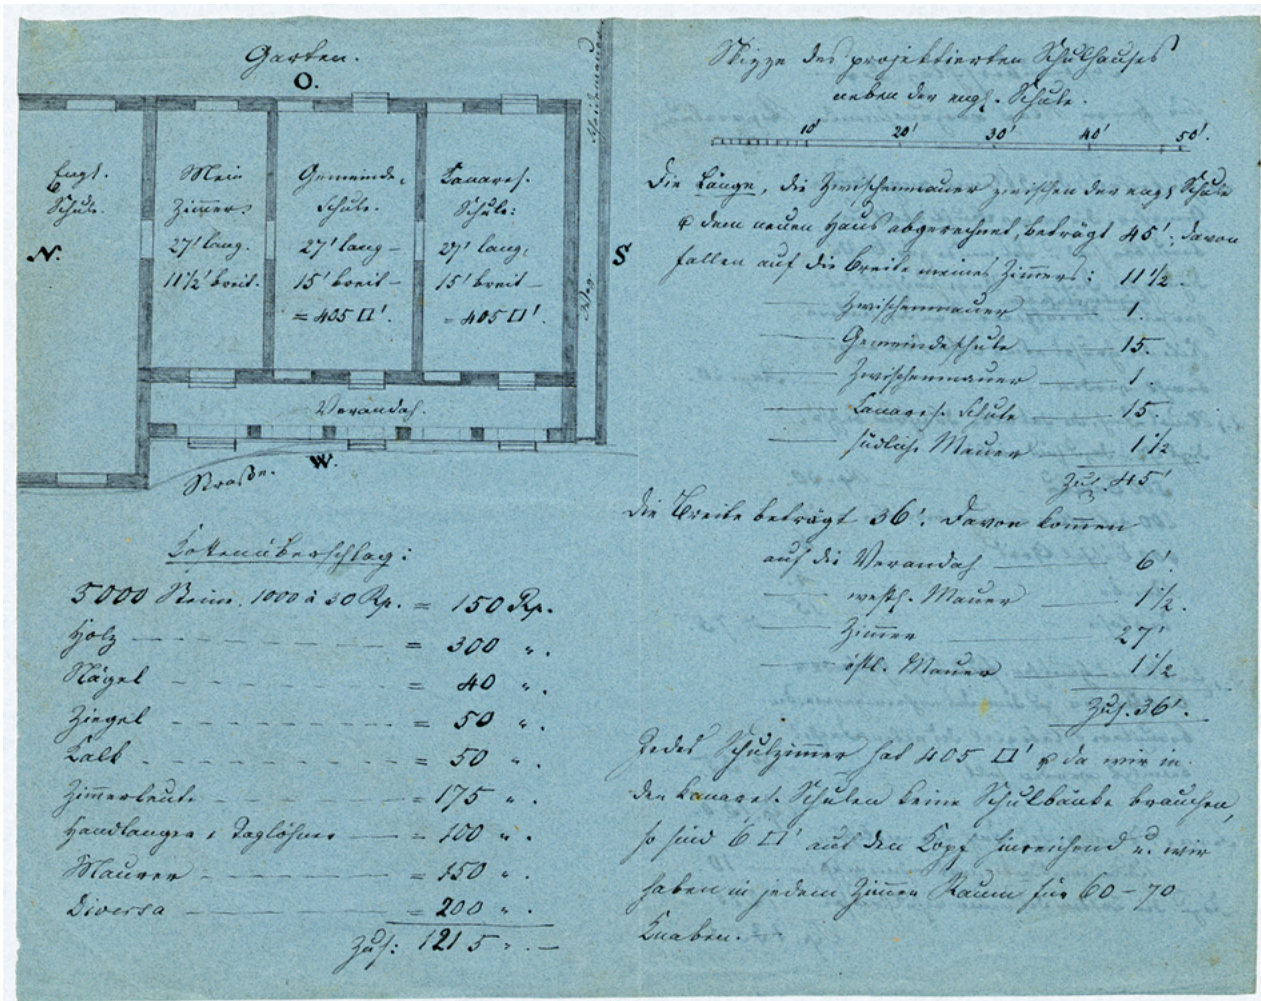 Garten.
O.
Engl.
Schule.
N.
Mein
Zimmer:
27' lang.
11 1/2' breit.
Gemeinde-
Schule.
27' lang –
15' breit –
= 405 □'.
Canares.
Schule:
27' lang,
15' breit –
= 405 □'.
S
Weg
Verandah.
W.
Straße.
Kostenüberschlag:
5000 Steine. 1000 à 30 Rp. = 150 Rp.
Holz = 300 " .
Nägel = 40 " .
Ziegel = 50 " .
Kalk = 50 " .
Zimmerleute = 175 " .
Handlanger & Taglöhner = 100 " .
Maurer = 150 " .
Diversa = 200 " .
Zus: 1215 " . –
Skizze des projektierten Schulhauses
neben der engl. Schule.
10' 20' 30' 40' 50'.
Die Länge, die Zwischenmauer zwischen der engl. Schule
& dem neuen Haus abgerechnet, beträgt 45'; davon
fallen auf die Breite meines Zimmers: 11 1/2.
— Zwischenmauer — 1.
— Gemeindeschule — 15.
— Zwischenmauer — 1
— Canares. Schule — 15.
— südliche Mauer 1 1/2
Zus. 45'
Die Breite beträgt 36'. Davon kommen
auf die Verandah — 6'.
— westl. Mauer — 1 1/2.
— Zimmer — 27'
— östl. Mauer — 1 1/2
Zus. 36'.
Jedes Schulzimmer hat 405 □' & da wir in
den kanares. Schulen keine Schulbänke brauchen,
so sind 6 □' auf den Kopf hinreichend u. wir
haben in jedem Zimmer Raum für 60 – 70
Knaben.